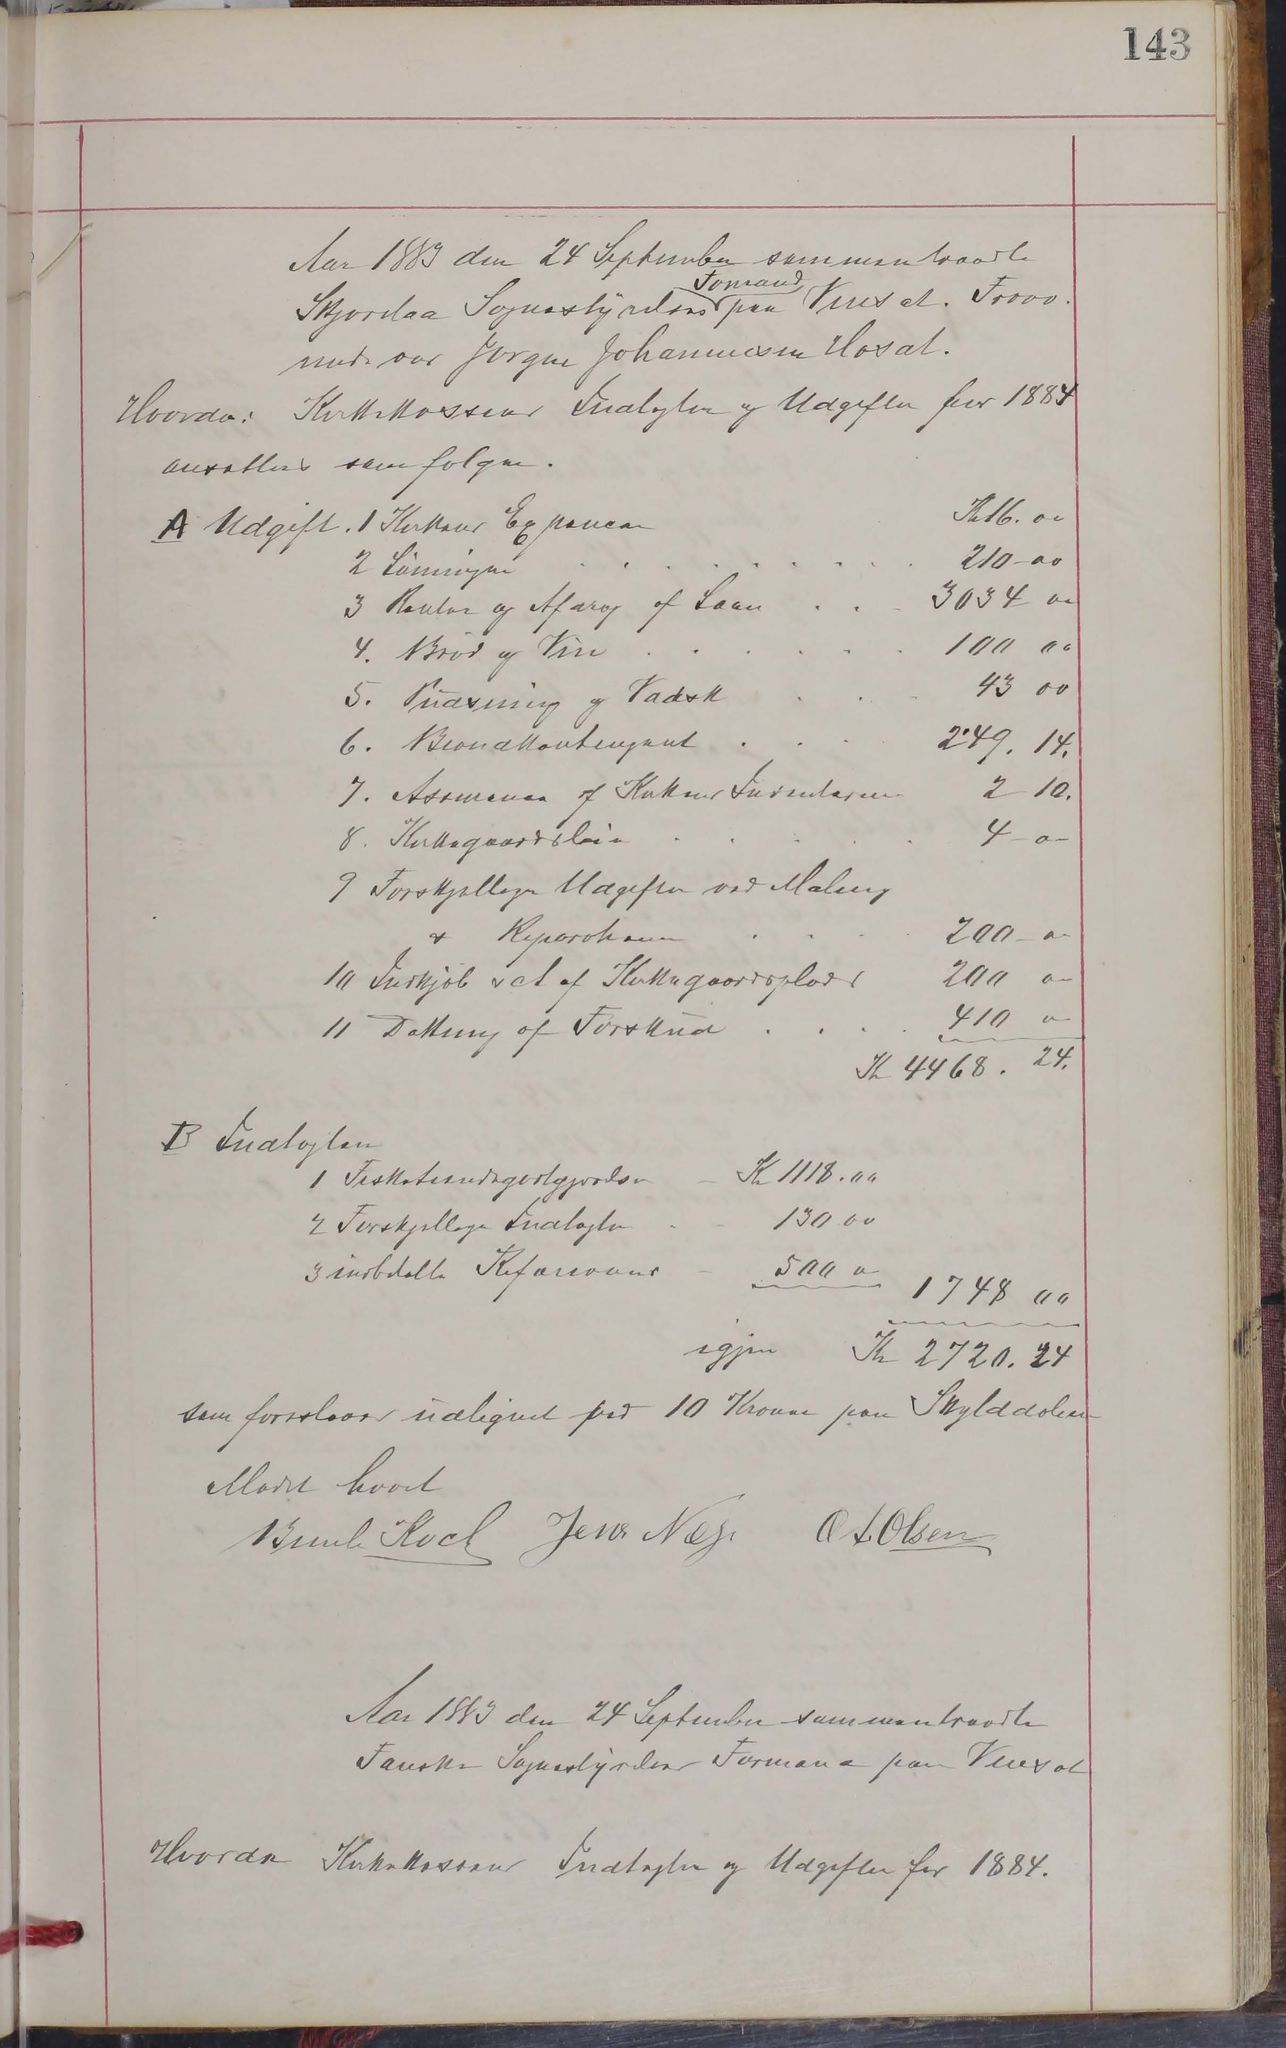 143
Aar 1883 den 24 September sammentraadte
Skjerstad Sognestyrelses Formand paa Vinset. Frava-
rende var Jørgen Johannesen Hoset.
Hvorda: Kirkekassens Indtægter og Udgifter for 1884
ansættes som følger.
A Udgift. 1 Kirkens Expencer Kr 16. 00
2 Lønninger . . . . . . . . 210-00
3 Renter og Afdrag af Laan . . . 3034 00
4. Brød og Vin . . . . . . 100 00
5. Pudsning og Vadsk . . . 43 00
6. Brandkontingent . . . 249. 14.
7. Assurance af Kirkens Inventarium 2 10.
8. Kirkegaardsleie . . . . 4-0-
9 Forskjellige Udgifter ved Maling
& Reparationer . . . . 200-0-
10 Indkjøb &ct af Kirkegaardsplads 200 0-
11 Dækning af Forskud . . . . 410 0-
Kr 4468. 24.
B Indtægter
1 Fisketiendegodtgjørelse - Kr 1118.00
2 Forskjellige Indtægter . - 130 00
3 indbetalte Restancer - 500 0- 1748 00
igjen Kr 2720. 24
som foreslaaes udlignet med 10 Kroner paa Skylddaleren
Mødet hævet
Koch Jens O A Olsen
Aar 1883 den 24 September sammentraadte
Fauske Sognestyrelses Formænd paa Vinset
Hvorda Kirkekassens Indtægter og Udgifter for 1884.